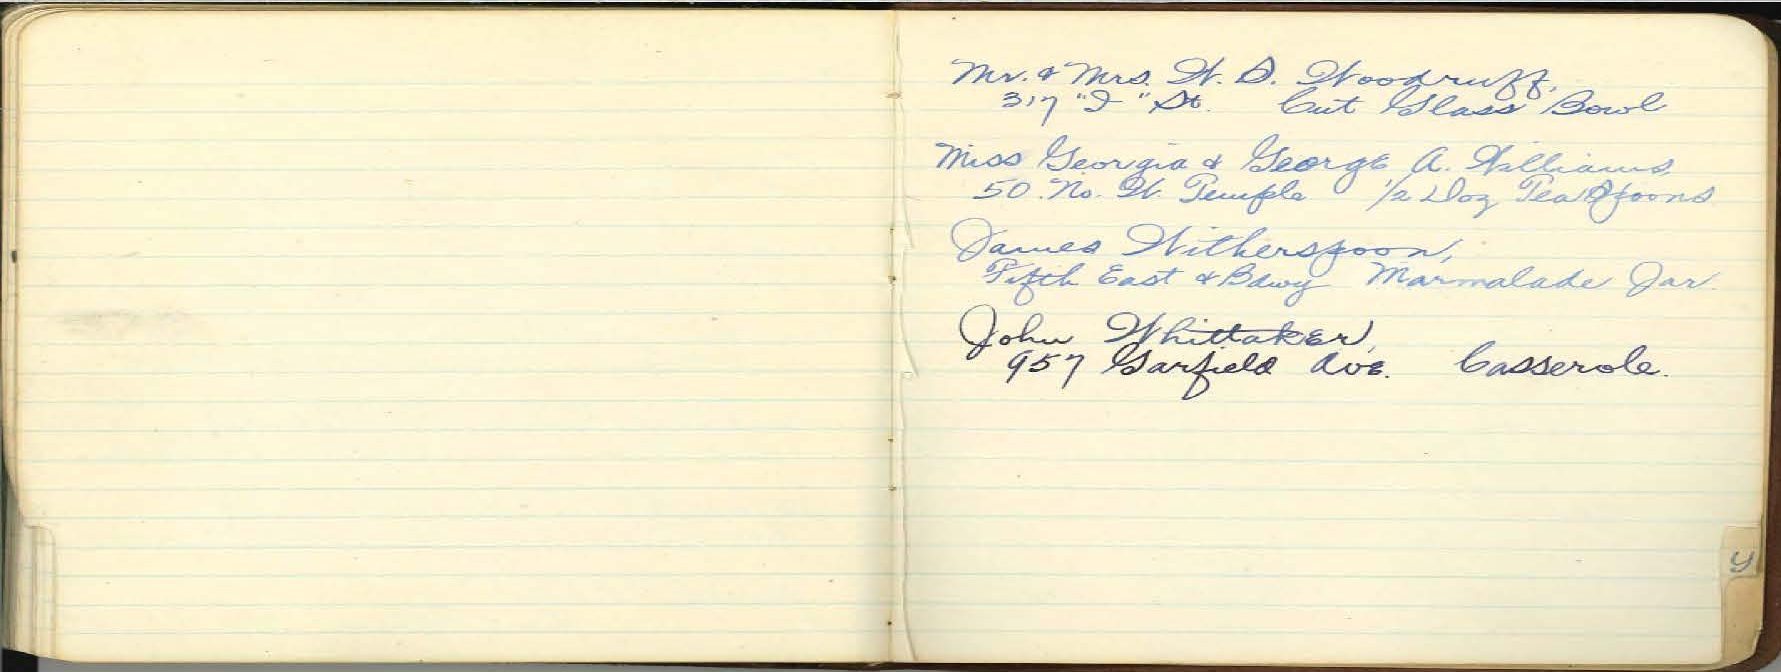 Mr. & Mrs. W. S. Woodruff,
317 "I" St. Cut Glass Bowl
Miss Georgia & George A. Williams,
50 No. W. Temple 1/2 Doz Tea Spoons
James Witherspoon,
Fifth East & Bdwy Marmalade Jar.
John Whittaker,
957 Garfield Ave. Casserole.
Y